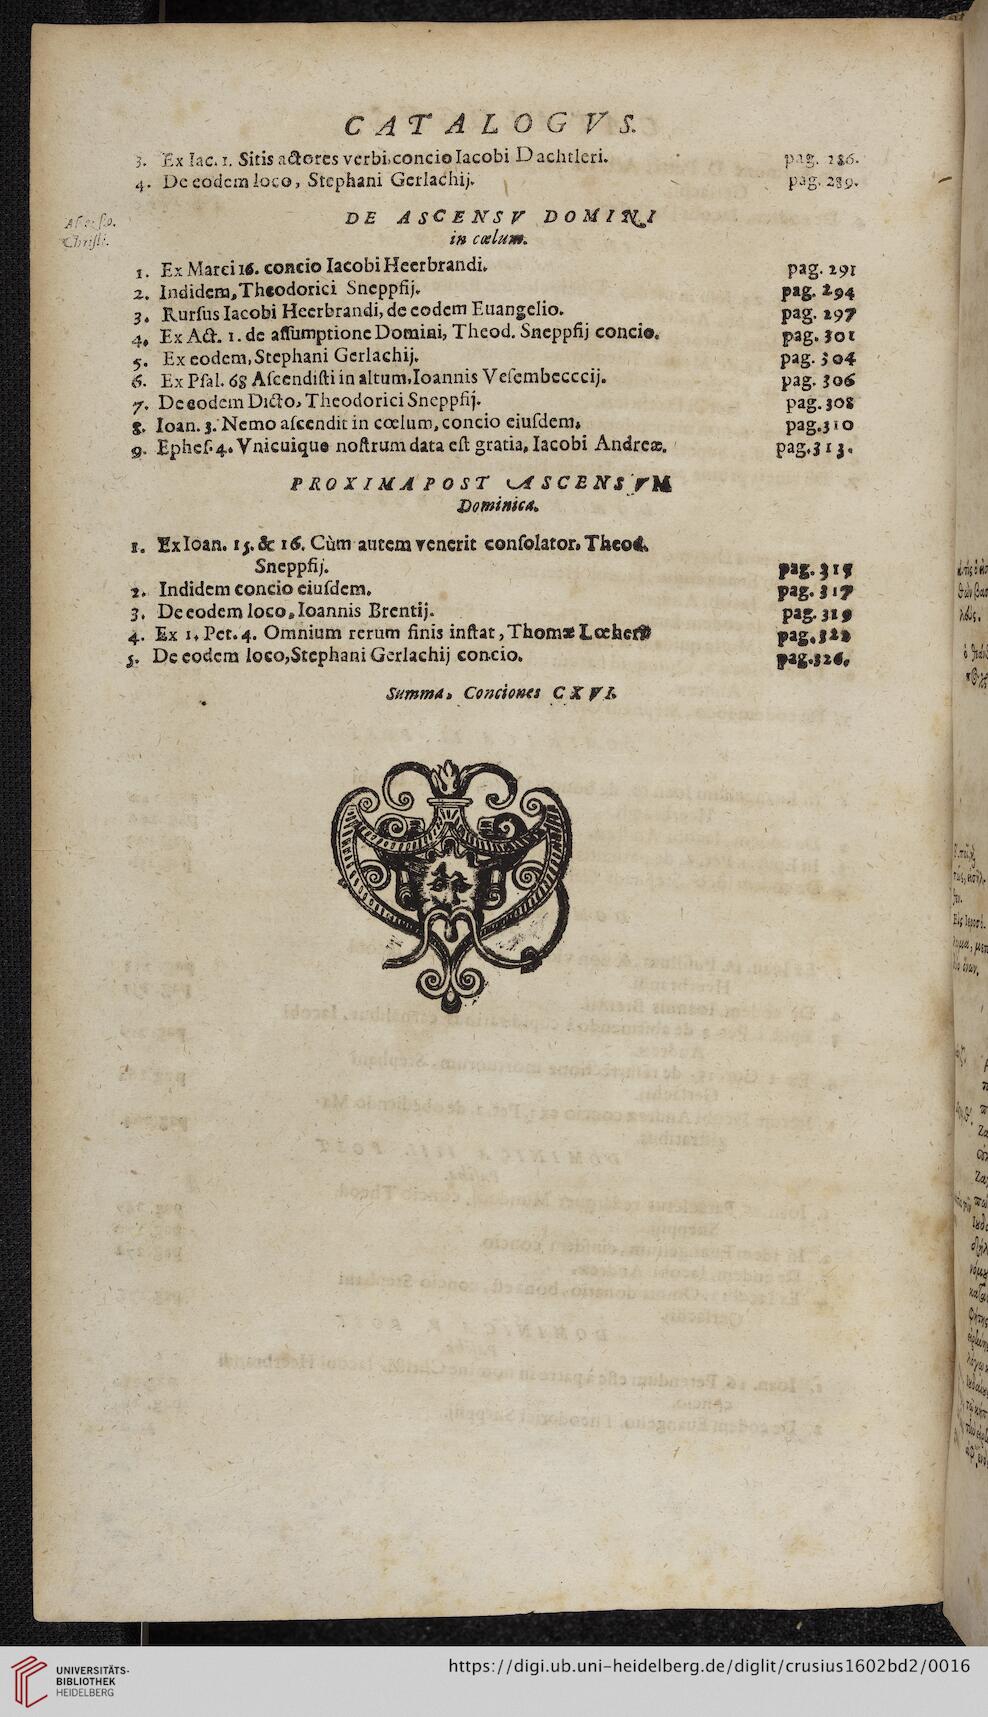 CATALOGVS.
3. Ex Iac. 1. Sitis actores verbi, concio Iacobi Dachtleri. pag. 286.
4. De eodem loco, Stephani Gerlachij. pag. 289.
DE ASCENSV DOMINI
in cœlum.
Ascensio.
Christi.
1. Ex Marci 16. concio Iacobi Heerbrandi. pag. 291
2. Indidem, Theodorici Sneppfij. pag. 294
3. Rurſus Iacobi Heerbrandi, de eodem Euangelio. pag. 297
4. Ex Act. 1. de aſſumptione Domini, Theod. Sneppfij concio. pag. 301
5. Ex eodem, Stephani Gerlachij. pag. 304
6. Ex Pſal. 68 Aſcendiſti in altum, Ioannis Veſembecccij. pag. 306
7. De eodem Dicto, Theodorici Sneppfij. pag. 308
8. Ioan. 3. Nemo aſcendit in cœlum, concio eiuſdem. pag. 310
9. Epheſ. 4. Vnicuique noſtrum data eſt gratia, Iacobi Andreæ. pag. 313.
PROXIMA POST ASCENSVM
Dominica.
1. Ex Ioan. 15. & 16. Cùm autem venerit conſolator, Theod.
Sneppfij. pag. 315
2. Indidem concio eiuſdem. pag. 317
3. De eodem loco, Ioannis Brentij. pag. 319
4. Ex 1. Pet. 4. Omnium rerum finis inſtat, Thomæ Lœheri pag. 322
5. De eodem loco, Stephani Gerlachij concio. pag. 326.
Summa, Conciones CXVI.
UNIVERSITÄTS-
BIBLIOTHEK
HEIDELBERG
https://digi.ub.uni-heidelberg.de/diglit/crusius1602bd2/0016